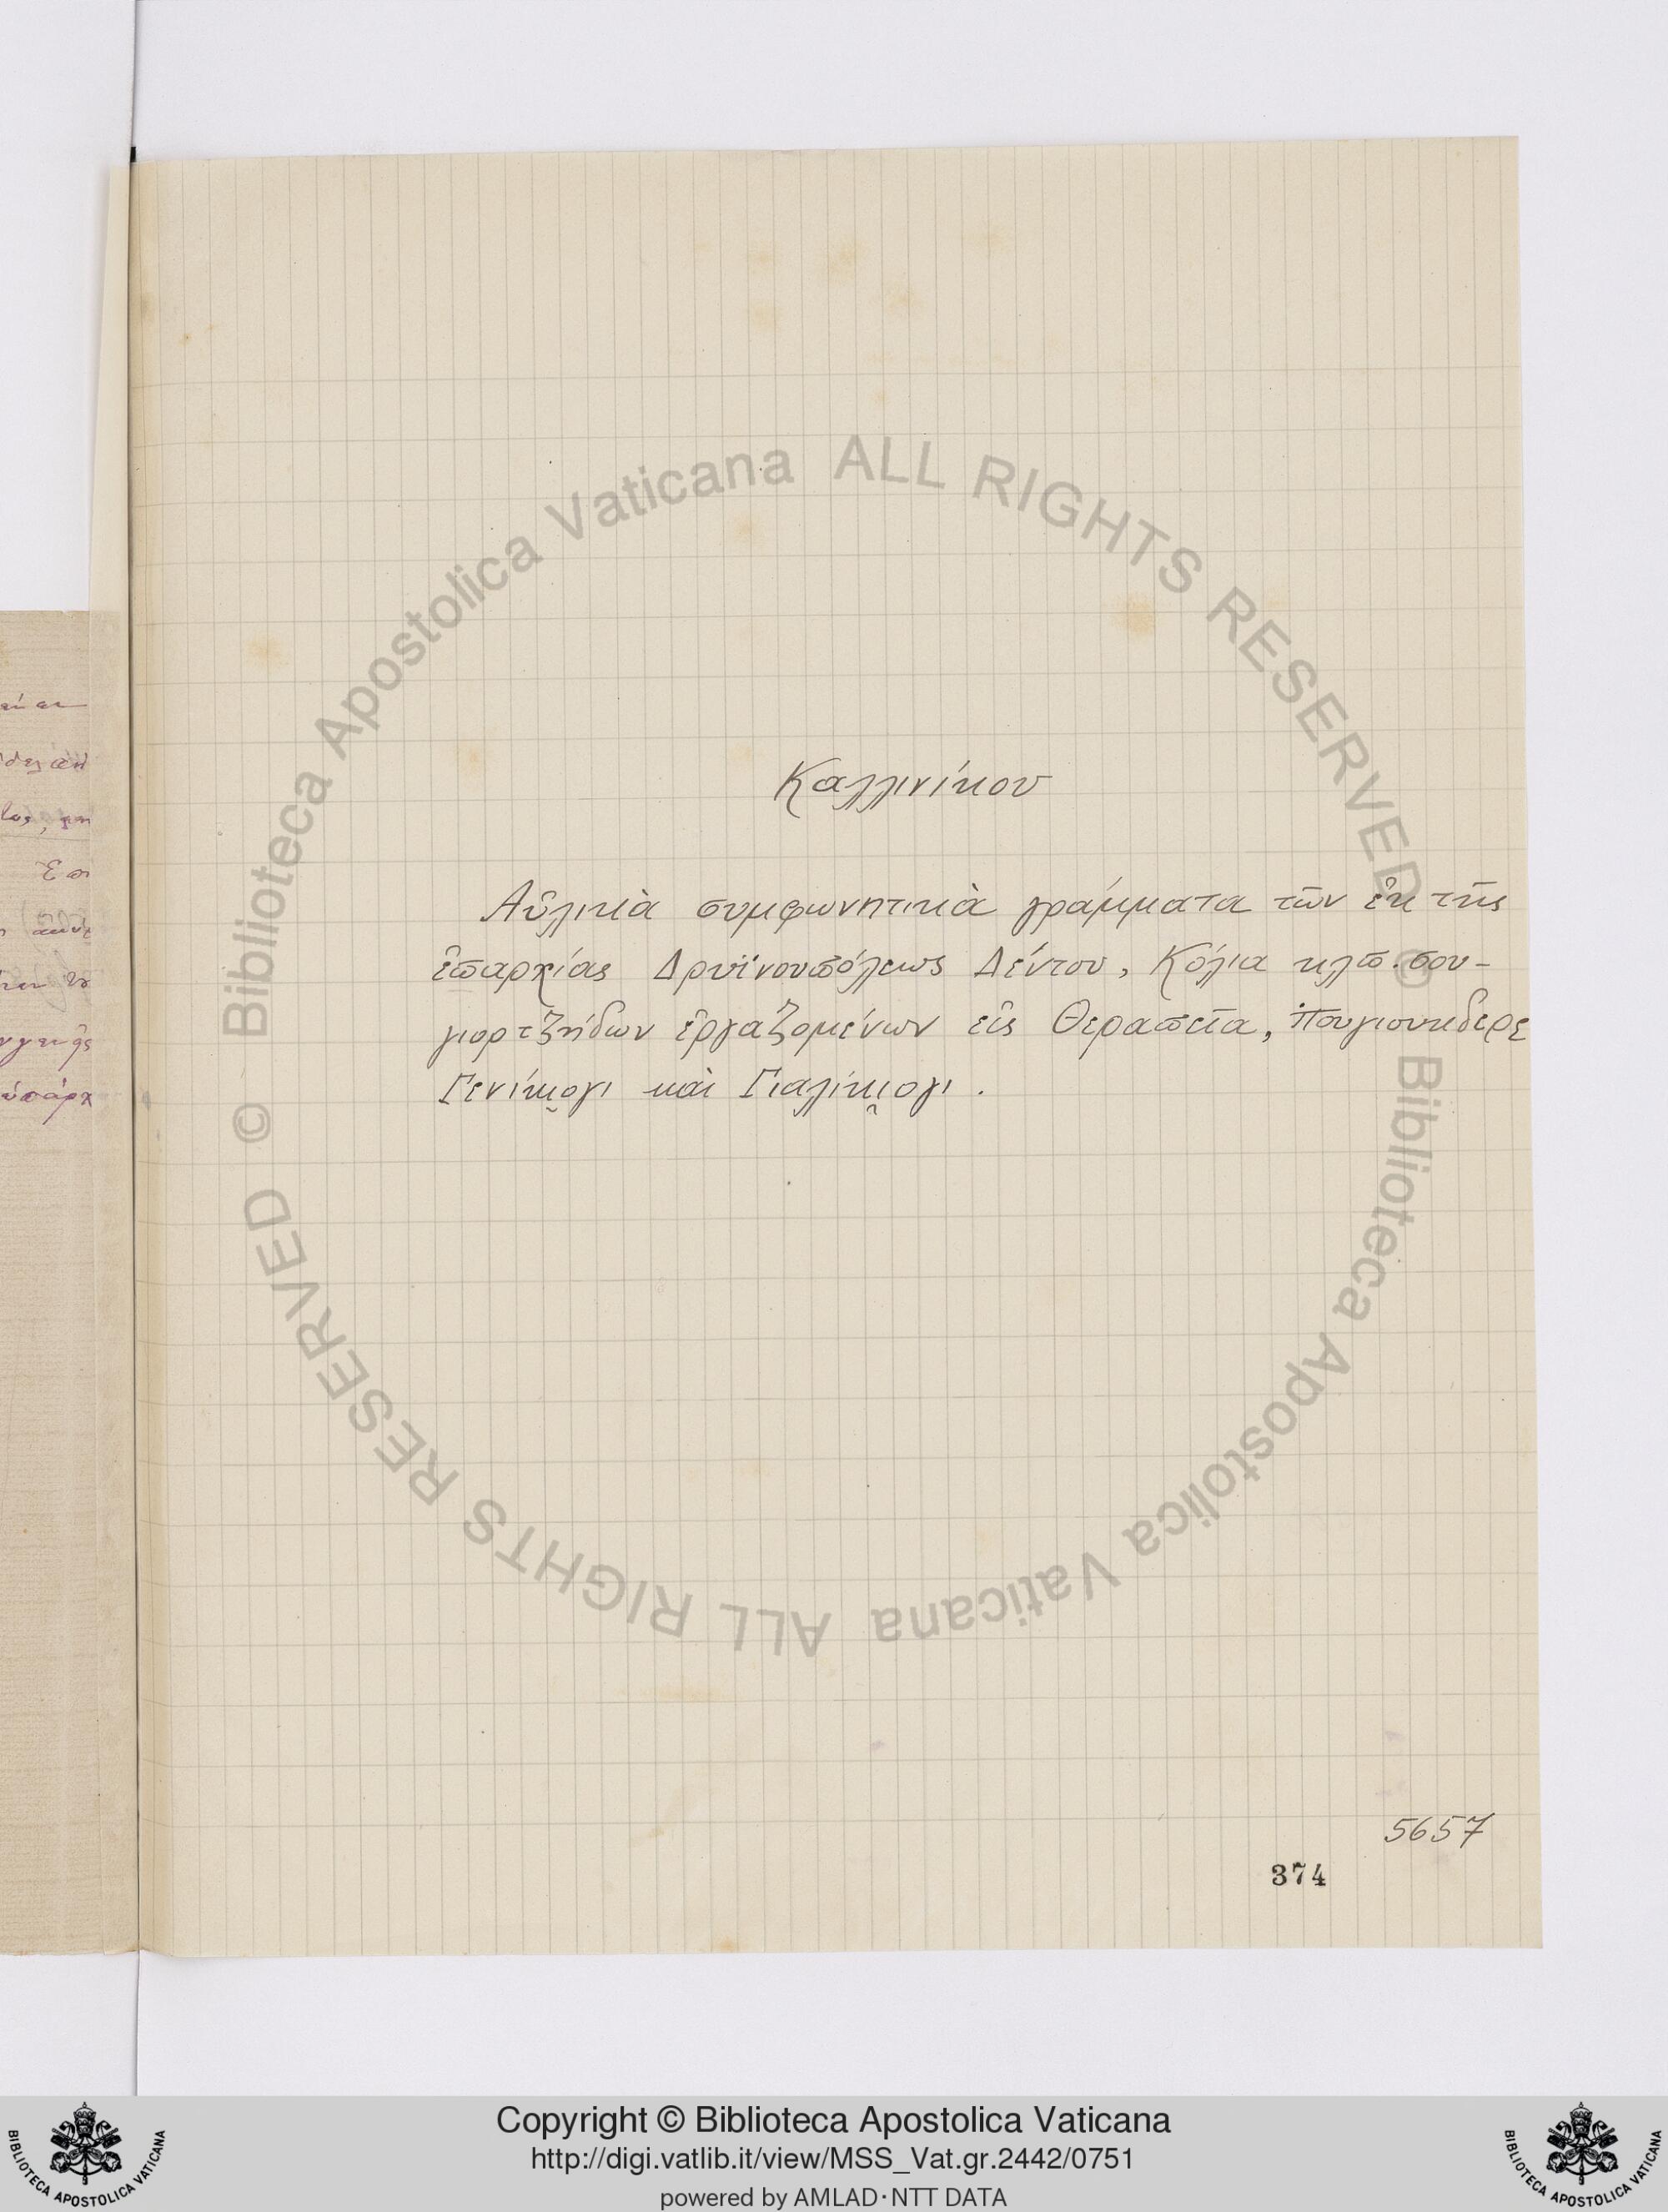 Καλλινίκου
Αὐλικὰ συμφωνητικὰ γράμματα τῶν ἐκ τῆς
ἐπαρχίας Δρυϊνουπόλεως Δέντου, Κόλια κλπ. σου-
γιορτζήδων ἐργαζομένων εἰς Θεραπεῖα, Πουγιουκδερε
Γενίκιογι καὶ Γιαλίκιογι.
5657
374
© Biblioteca Apostolica Vaticana ALL RIGHTS RESERVED
© Biblioteca Apostolica Vaticana ALL RIGHTS RESERVED
Copyright © Biblioteca Apostolica Vaticana
http://digi.vatlib.it/view/MSS_Vat.gr.2442/0751
powered by AMLAD·NTT DATA
BIBLIOTECA APOSTOLICA VATICANA
BIBLIOTECA APOSTOLICA VATICANA